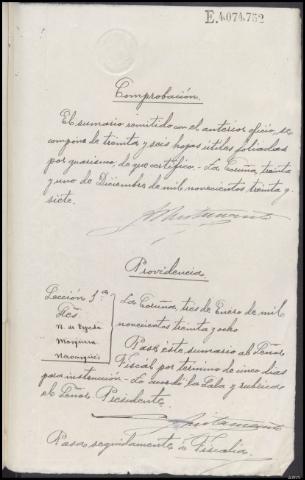 E.4.074.752
Comprobación.
El sumario remitido con el anterior oficio, se
compone de treinta y seis hojas útiles foliadas
por guarismo, de que certifico.- La Coruña, treinta
y uno de Diciembre de mil novecientos treinta y
siete.
Providencia
Sección 1ª
Sres.
N. de Tejada
Navarrete
La Coruña, tres de Enero de mil
novecientos treinta y ocho
Pase este sumario al Señor
Fiscal por termino de cinco dias
para instrucción.- Lo acordó la Sala y rubrica
el Señor Presidente.
Pasa seguidamente a Fiscalía.